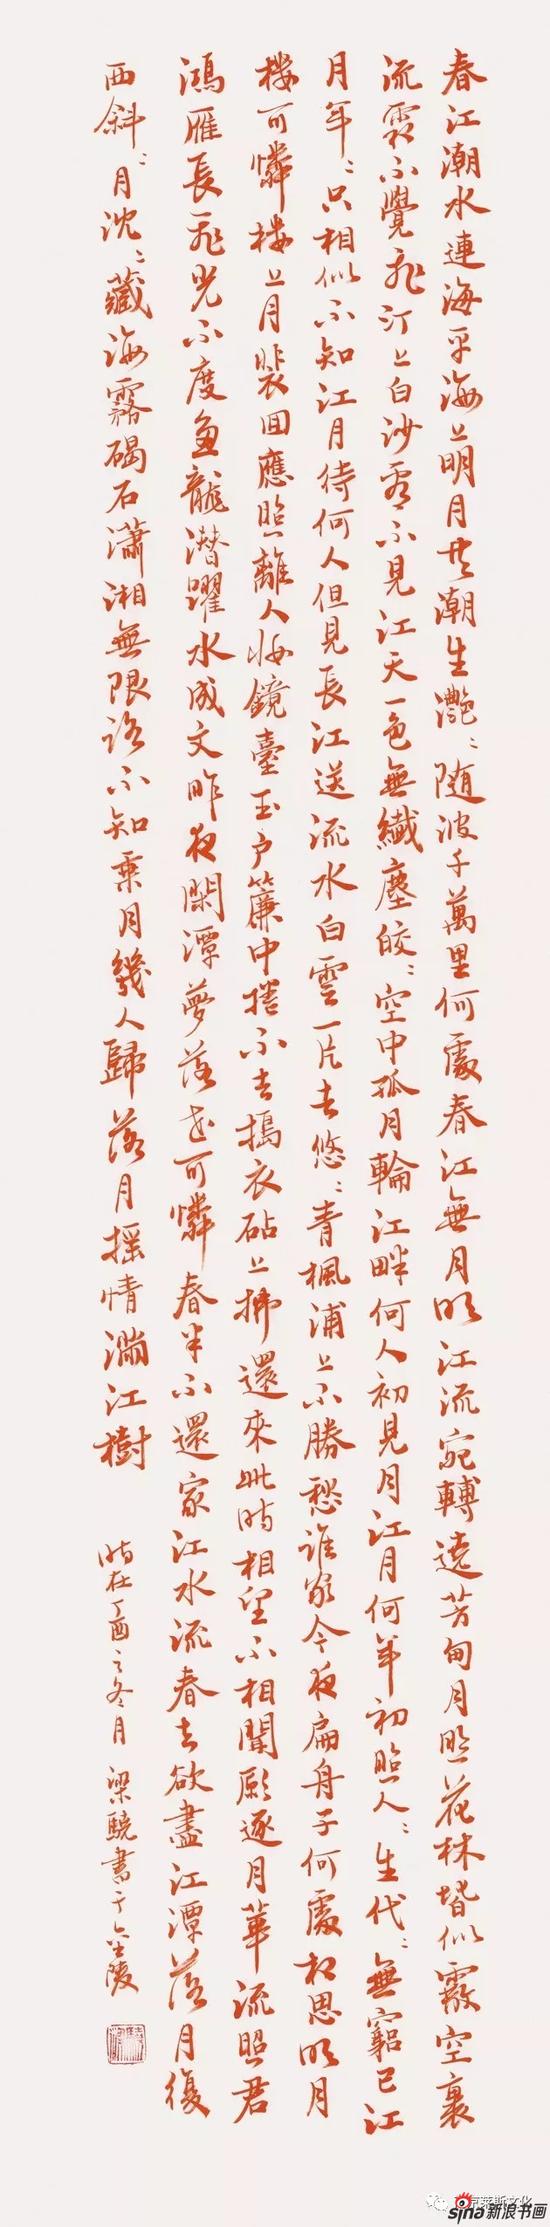 春江潮水連海平海上明月共潮生灧〻随波千萬里何處春江無月明江流宛轉遶芳甸月照花林皆似霰空裏
流霜不覺飛汀上白沙看不見江天一色無纖塵皎〻空中孤月輪江畔何人初見月江月何年初照人〻生代〻無窮已江
月年〻只相似不知江月待何人但見長江送流水白雲一片去悠〻青楓浦上不勝愁誰家今夜扁舟子何處相思明月
樓可憐樓上月裴回應照離人妝鏡臺玉戶簾中捲不去搗衣砧上拂還來此時相望不相聞願逐月華流照君
鴻雁長飛光不度魚龍潛躍水成文昨夜閑潭夢落花可憐春半不還家江水流春去欲盡江潭落月復
西斜〻月沈〻藏海霧碣石瀟湘無限路不知乘月幾人歸落月摇情滿江樹
時在丁酉之冬月 梁驍書于金陵
莱斯文化
sina新浪书画